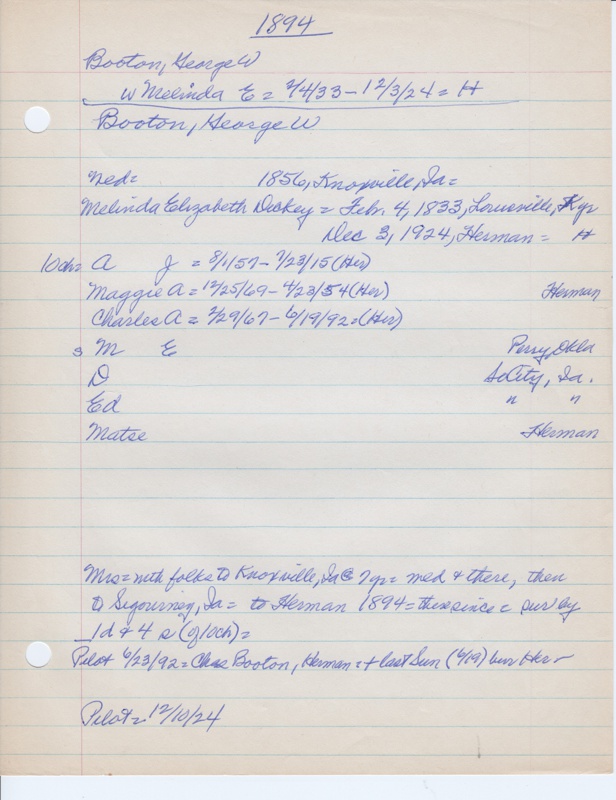 1894
Booton, George W
w Melinda E = 2/4/33 - 12/3/24 = H
Booton, George W
Med = 1856, Knoxville, Ia =
Melinda Elizabeth Dickey = Feb. 4, 1833, Louisville, Ky
Dec 3, 1924, Herman = H
10ch = A J = 8/1/57 - 7/23/15 (Her)
Maggie A = 12/25/69 - 4/23/54 (Her) Herman
Charles A = 2/29/67 - 6/19/92 = (Her)
s M E Perry, Okla
D So City, Ia.
Ed " "
Matse Herman
Mrs = with folks to Knoxville, Ia @ 7 yr = med & there, then
to Sigourney, Ia = to Herman 1894 = there since = surv by
1 d & 4 s (of 10ch) =
Pilot 6/23/92 = Chas Booton, Herman = + last Sun (6/19) bur Her
Pilot = 12/10/24